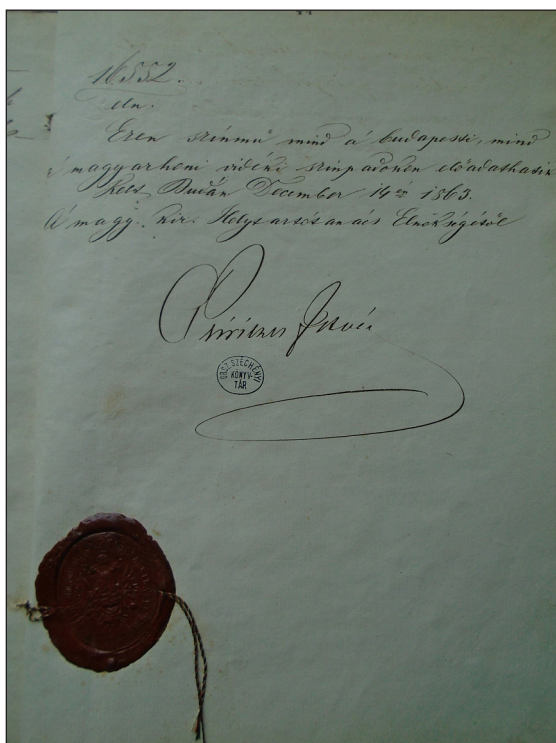 16552.
eln.
Ezen színmű mind a budapesti, mind
a magyarhoni vidéki színpadokon előadathatik
Kelt Budán December 14én 1863.
A magy. kir. Helytartótanács Elnökségétől
István
ORSZ. SZÉCHÉNYI
KÖNYV-
TÁR